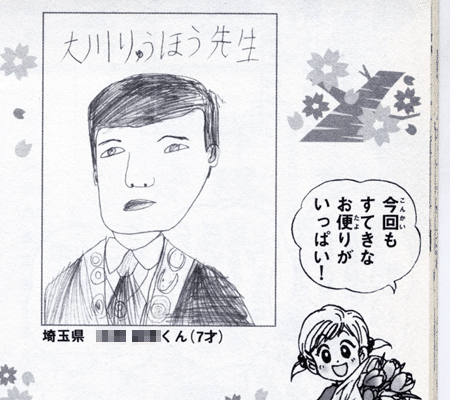 大川りゅうほう先生
今回も
こんかい
すてきな
お便りが
たよ
いっぱい!
埼玉県 くん(7才)